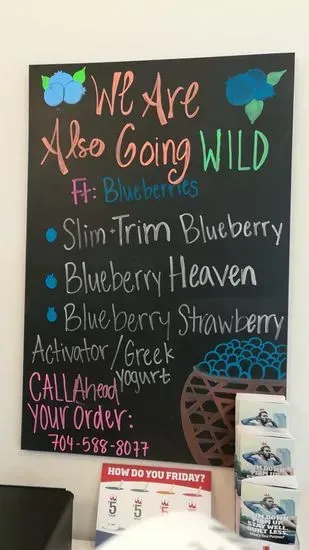 We Are
Also Going WILD
Ft: Blueberries
Slim-N-Trim Blueberry
Blueberry Heaven
Blueberry Strawberry
Activator/Greek
Yogurt
CALL Ahead
YOUR Order:
704-588-8077
HOW DO YOU FRIDAY?
5 5
I'M DOWN
FIRM UP
STAY WELL
HURT LESS